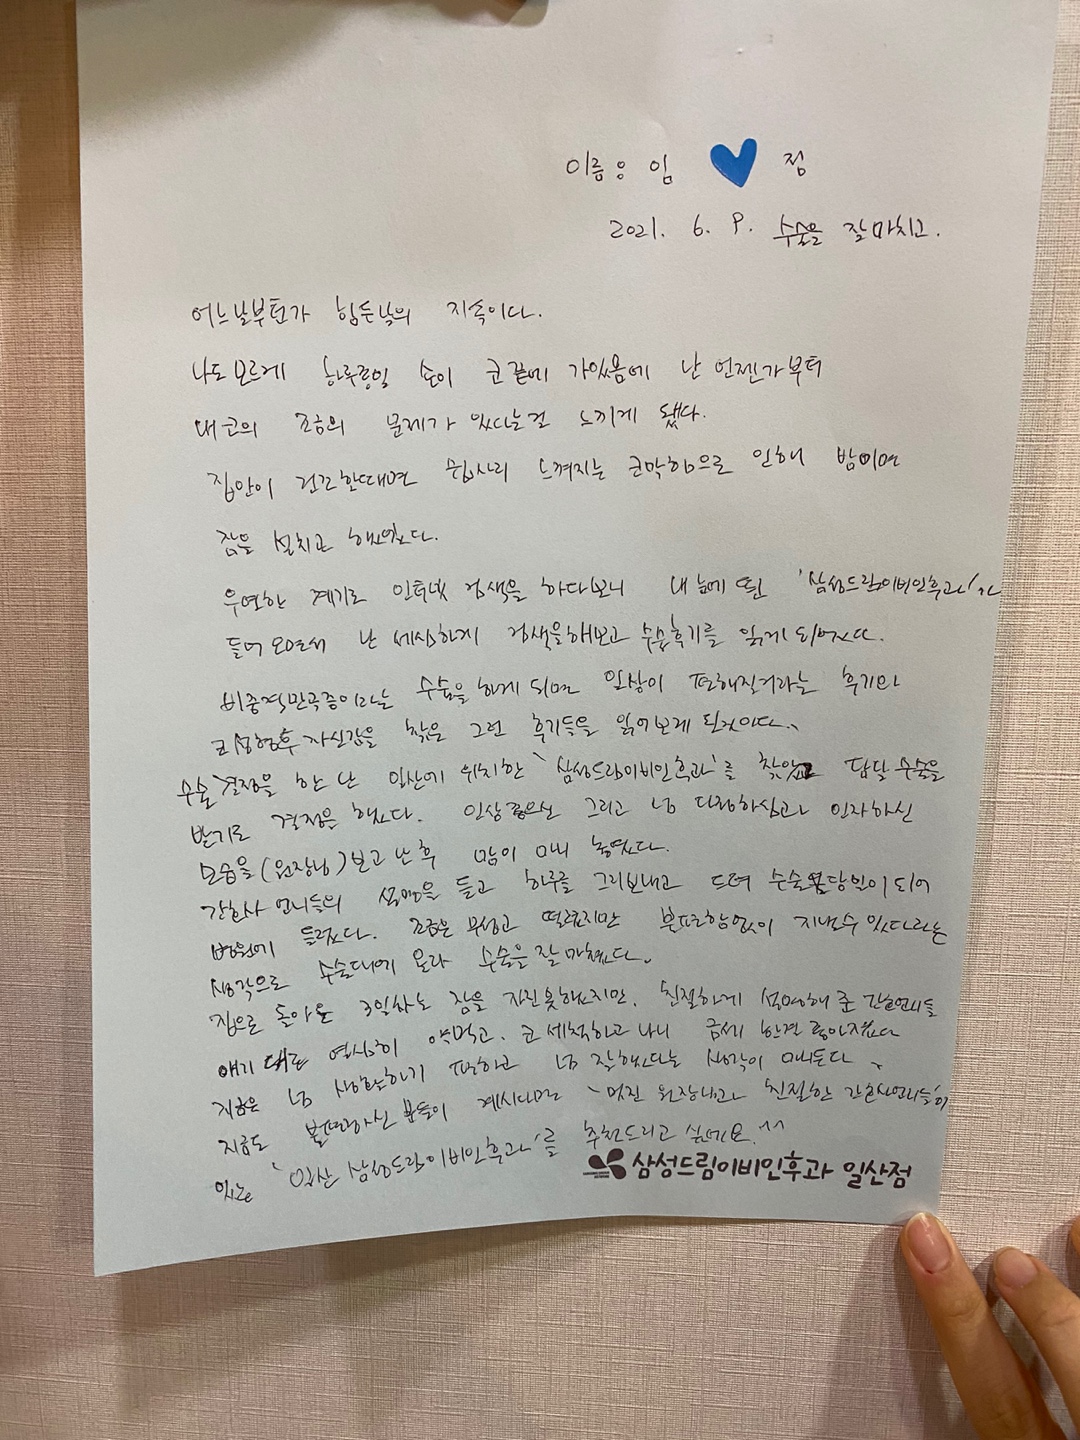 이름 : 임 정
2021. 6. 9. 수술을 잘 마치고.
어느날부턴가 힘든날의 지속이다.
나도 모르게 하루종일 손이 코 끝에 가있음에 난 언젠가부터
내 코의 호흡의 문제가 있다는걸 느끼게 됐다.
집안이 건조한때면 쉽사리 느껴지는 코막힘으로 인해 밤이면
잠을 설치고 했었다.
우연한 계기로 인터넷 검색을 하다보니 내 눈에 띈 '삼성드림이비인후과'가
들어 오면서 난 세심하게 검색을해보고 수술후기를 읽게 되었다.
비중격만곡증이라는 수술을 하게 되면 일상이 편해질거라는 후기와
코성형후 자신감을 찾은 그런 후기들을 읽어보게 된것이다.
수술 결정을 한 난 일산에 위치한 '삼성드림이비인후과'를 찾았고 담달 수술을
받기로 결정을 했다. 인상 좋으신 그리고 넘 다정하심과 인자하신
모습을 (원장님) 보고 난 후 맘이 놓였다.
간호사 언니들의 설명을 듣고 하루를 그리보내고 드뎌 수술 당일이 되어
병원에 들렸다. 조금은 무섭고 떨렸지만 불편함없이 지낼수 있다라는
생각으로 수술대에 올라 수술을 잘 마쳤다.
집으로 돌아온 3일차는 잠을 자진 못했지만, 친절하게 설명해 준 간호언니들
얘기 대로 열심히 약먹고, 코 세척하고 나니 금세 한결 좋아졌다
지금은 넘 생활하기 편하고 넘 잘했다는 생각이 든다.
지금도 불편하신 분들이 계시다면 '멋진 원장님과 친절한 간호사언니들'이
있는 '일산 삼성드림이비인후과'를 추천드리고 싶네요.^^
삼성드림이비인후과 일산점